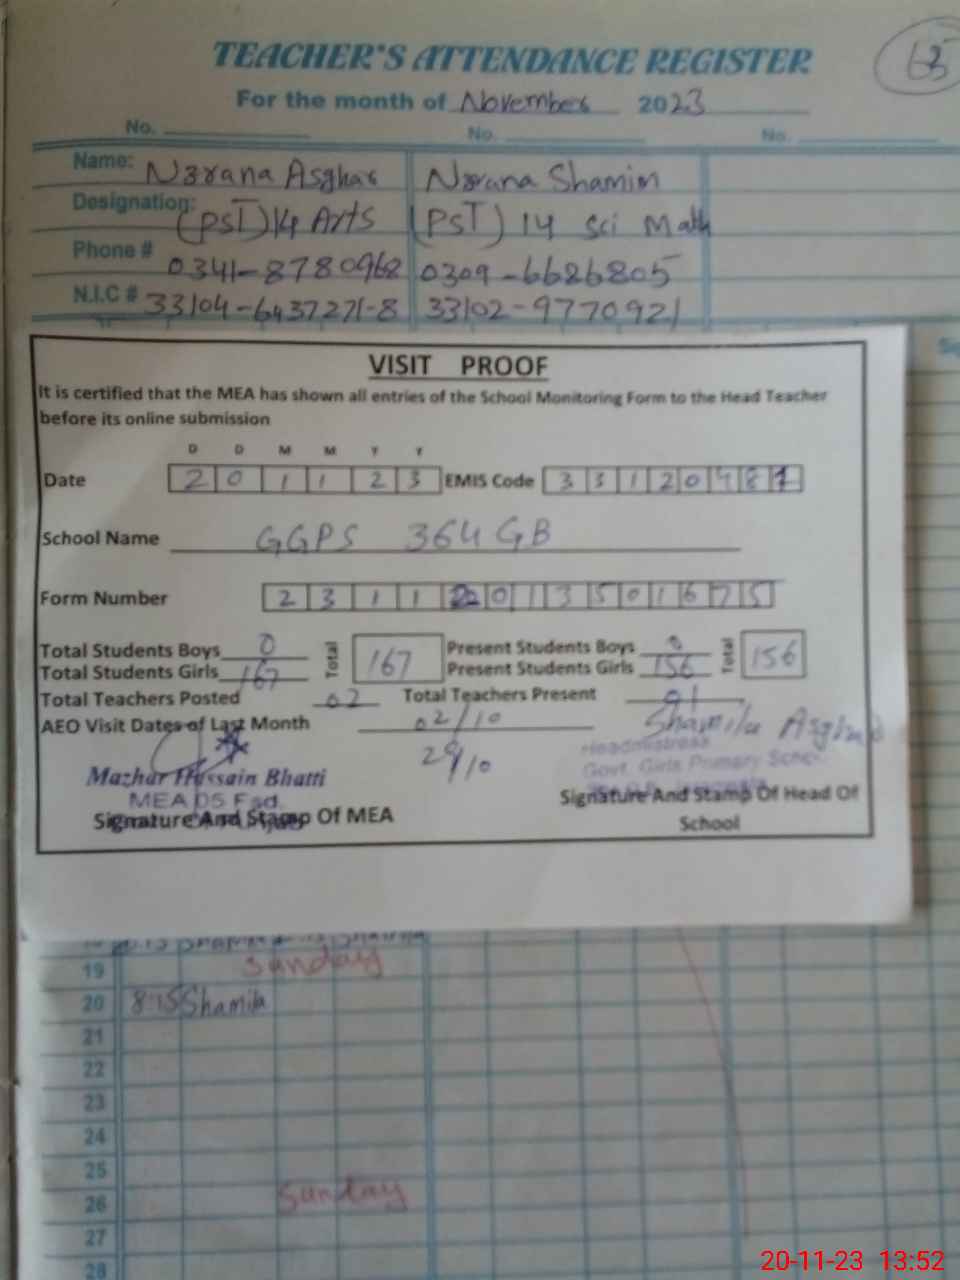 TEACHER'S ATTENDANCE REGISTER
For the month of November 2023
No. No. No.
Name: Nzrana Asghar Nzrana Shamim
Designation: (PST) 14 Arts (PST) 14 Sci Math
Phone # 0341-8780968 0309-6686805
N.I.C # 33104-6437271-8 33102-9770921
VISIT PROOF
It is certified that the MEA has shown all entries of the School Monitoring Form to the Head Teacher
before its online submission
D D M M Y Y
Date 2 0 1 1 2 3 EMIS Code 3 3 1 2 0 4 8 1
School Name GGPS 364 GB
Form Number 2 3 1 1 20 0 1 3 5 0 1 6 7 5
Total Students Boys 0 Total 167 Present Students Boys 0 Total 156
Total Students Girls 167 Present Students Girls 156
Total Teachers Posted 02 Total Teachers Present 01
AEO Visit Dates of Last Month 02/10
29/10
Shamila Asghar
Mazhar Hussain Bhatti
MEA 05 Fsd.
Signature And Stamp Of MEA
Headmistress
Govt. Girls Primary School
Signature And Stamp Of Head Of
School
19 Sunday
20 8:15 Shamila
21
22
23
24
25
26 Sunday
27
28
20-11-23 13:52